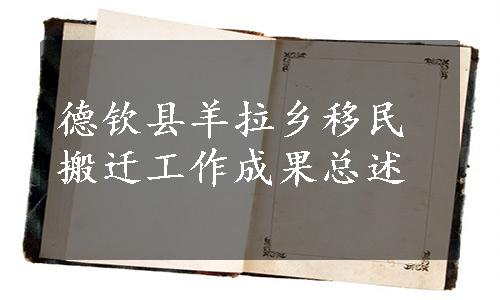 德钦县羊拉乡移民
搬迁工作成果总述